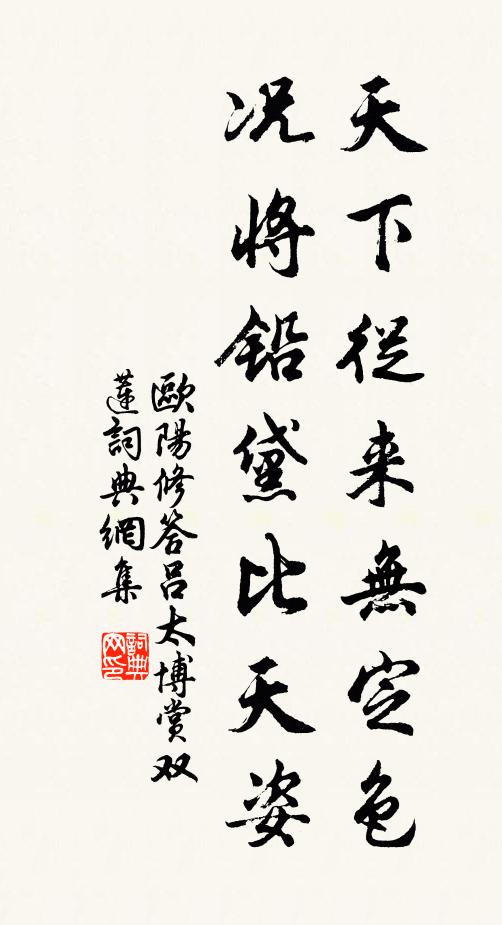 天下從来無定色
况將鉛黛比天姿
歐陽修答吕太博賞双
蓮詞典網集
詞典网印